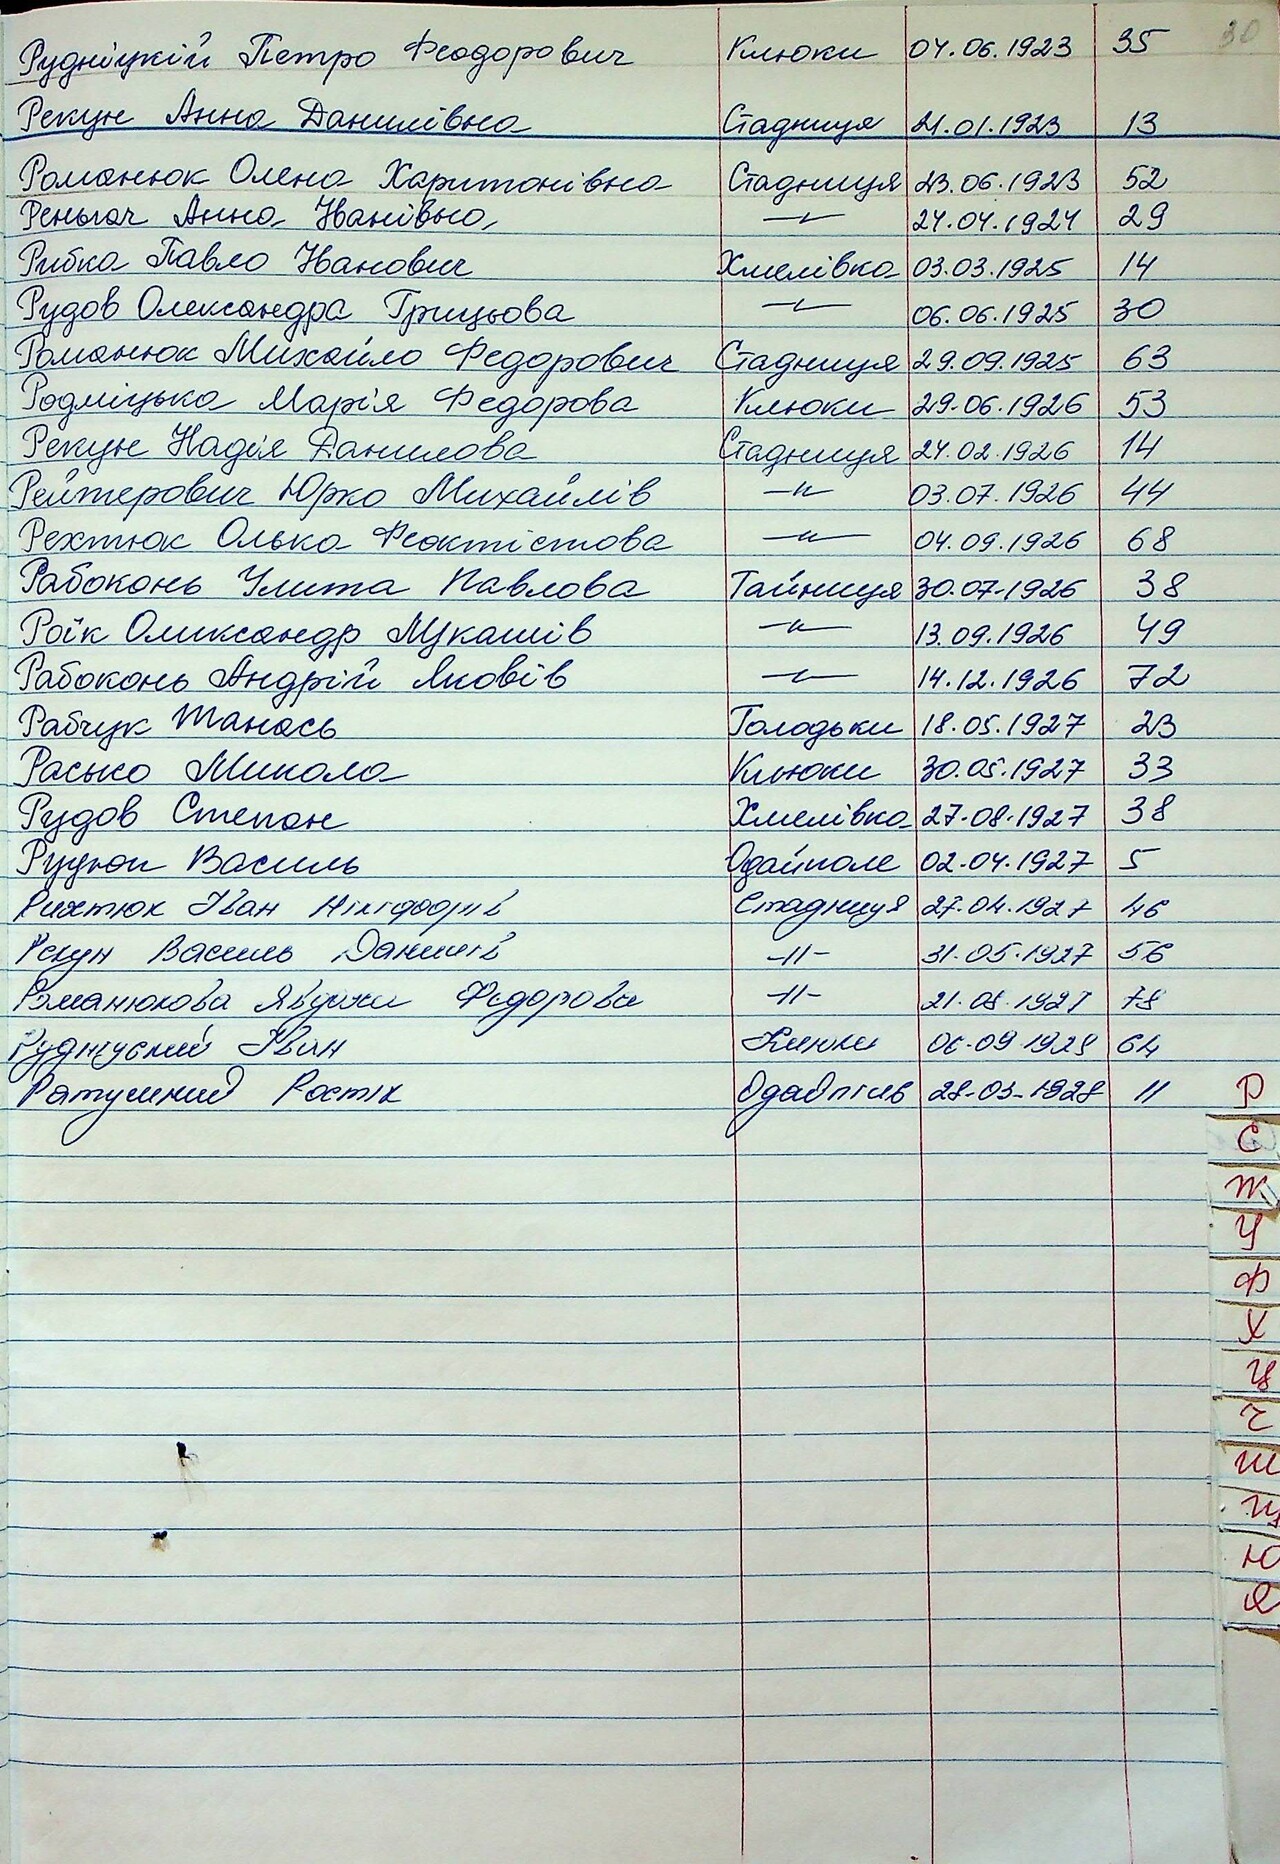 30
Рудніцкій Петро Феодорович Клюки 04.06.1923 35
Рекун Анна Данилівна Стадниця 21.01.1923 13
Романюк Олена Харитонівна Стадниця 23.06.1923 52
Реньгач Анна Іванівна —"— 24.04.1924 29
Рибка Павло Іванович Хмелівка 03.03.1925 14
Рудов Олександра Грицьова —"— 06.06.1925 30
Романюк Михайло Федорович Стадниця 29.09.1925 63
Родміцька Марія Федорова Клюки 29.06.1926 53
Рекун Надія Данилова Стадниця 24.02.1926 14
Рейтерович Юрко Михайлів —"— 03.07.1926 44
Рехтюк Олька Феоктістова —"— 04.09.1926 68
Рабоконь Улита Павлова Тайниця 30.07.1926 38
Роїк Оликсандр Лукашів —"— 13.09.1926 49
Рабоконь Андрій Яковів —"— 14.12.1926 72
Рабчук Танась Голодьки 18.05.1927 23
Расько Микола Клюки 30.05.1927 33
Рудов Степан Хмелівка 27.08.1927 38
Василь Одайполе 02.04.1927 5
Рихтюк Іван Стадниця 27.04.1927 46
Рекун Василь Данилів -//- 31.05.1927 56
Романюкова Явдоха Федорова -//- 21.08.1927 78
Іван Клюки 64
Ратушний Ростік 28-03-1928 11
Р
С
Т
У
Ф
Х
Ц
Ч
Ш
Щ
Ю
Я